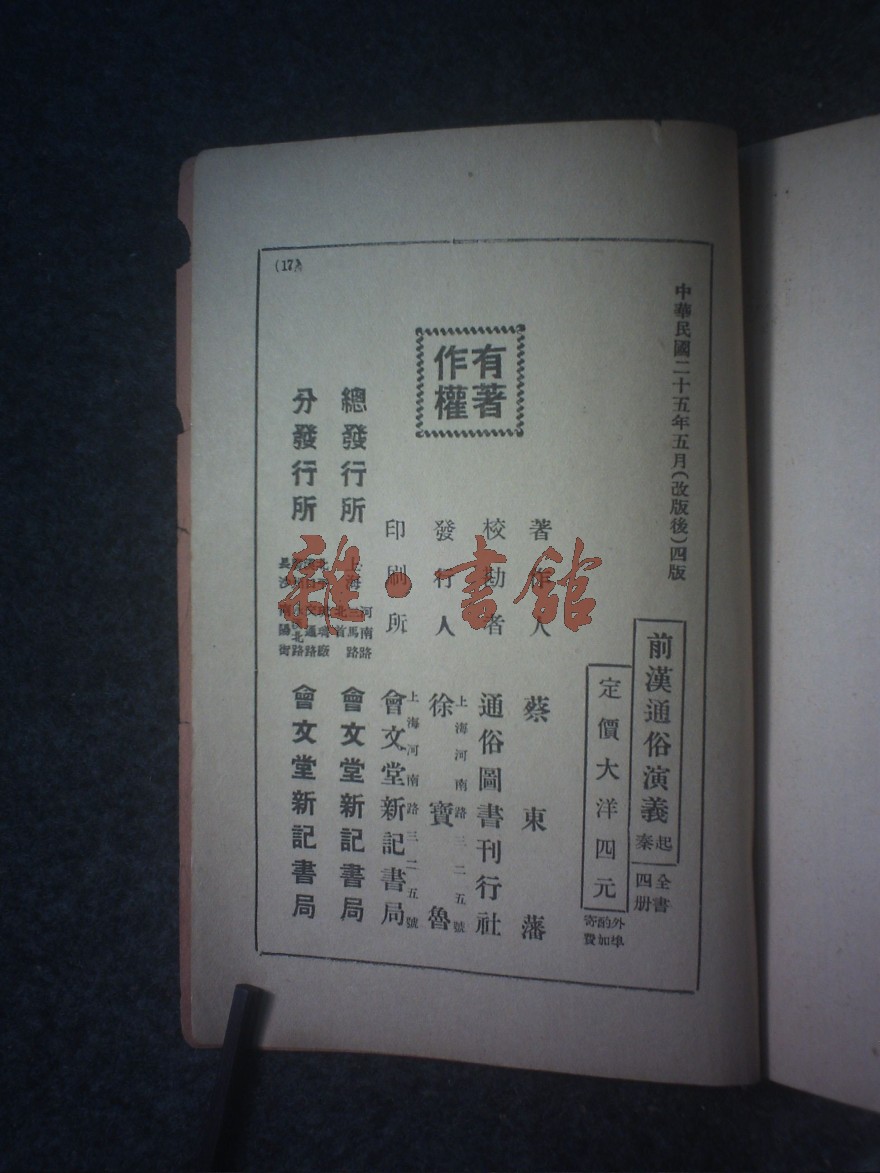 中華民國二十五年五月(改版後)四版
前漢通俗演義 起秦
全書四册
定價大洋四元
外埠酌加寄費
著作人 蔡東藩
校勘者 通俗圖書刊行社
有著作權
發行人 徐寶魯
上海河南路三二五號
印刷所 會文堂新記書局
上海河南路三二五號
總發行所 上海 河南路 三馬路 北首 會文堂新記書局
分發行所 北平 琉璃廠 漢口 交通路 北路 長沙 南陽街 會文堂新記書局
(17)
雜·書館